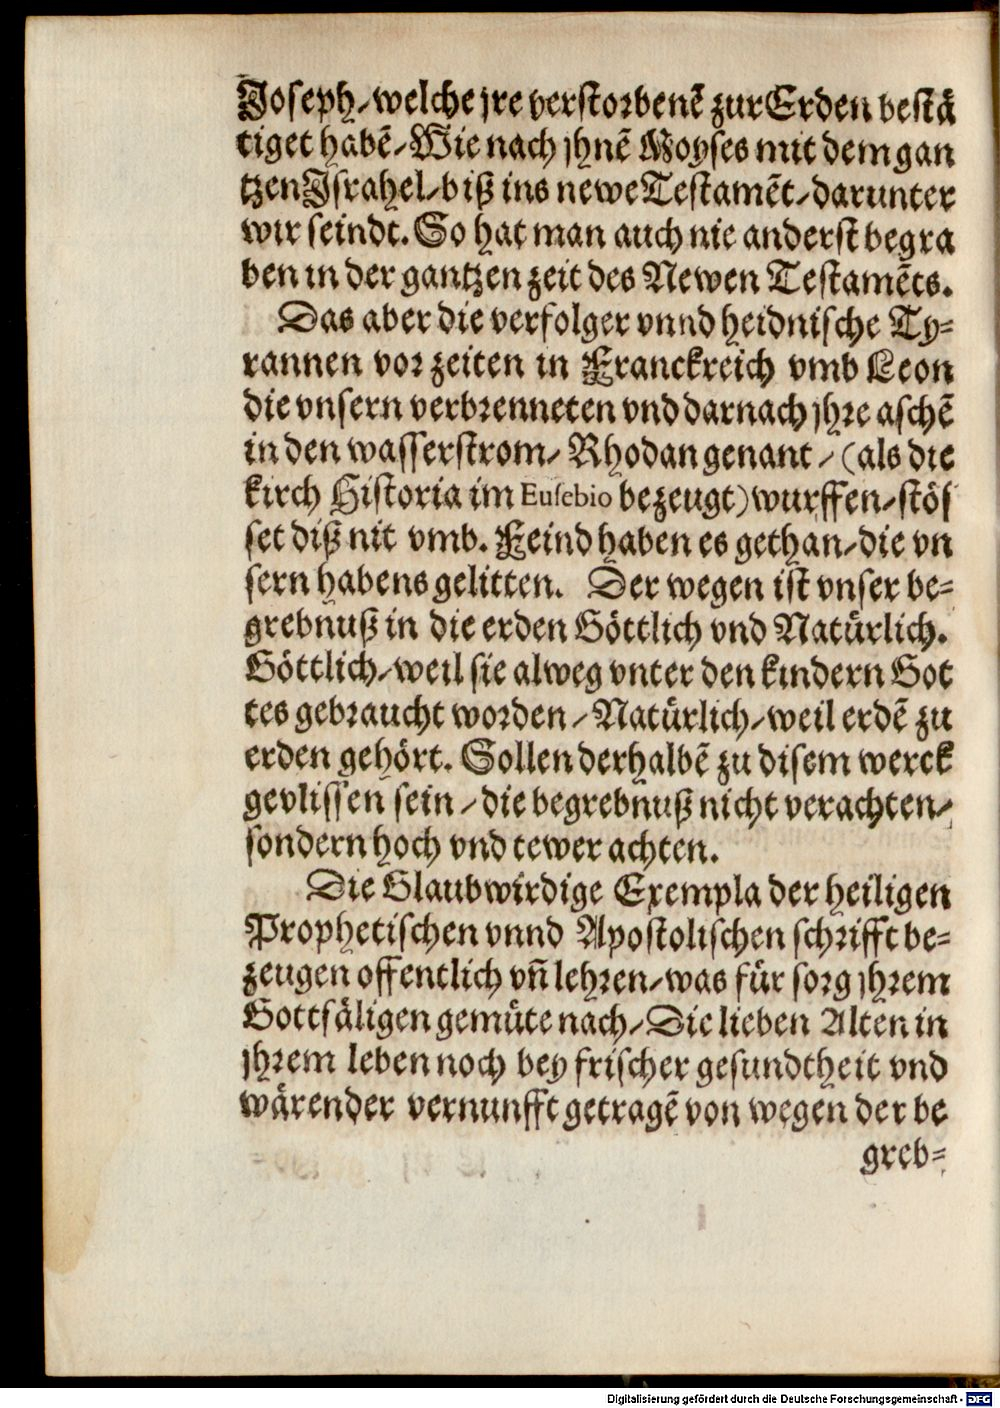 Joseph/welche jre verstorbenē zur Erden bestä
tiget habē/Wie nach jhnē Moyses mit dem gan
tzen Jsrahel/biß ins newe Testamēt/darunter
wir seindt. So hat man auch nie anderst begra
ben in der gantzen zeit des Newen Testamēts.
Das aber die verfolger vnnd heidnische Ty=
rannen vor zeiten in Franckreich vmb Leon
die vnsern verbrenneten vnd darnach jhre aschē
in den wasserstrom/ Rhodan genant/(als die
kirch Historia im Eusebio bezeugt) wurffen/stös
set diß nit vmb. Feind haben es gethan/die vn
sern habens gelitten. Der wegen ist vnser be=
grebnuß in die erden Göttlich vnd Natürlich.
Göttlich/weil sie alweg vnter den kindern Got
tes gebraucht worden/Natürlich/weil erdē zu
erden gehört. Sollen derhalbē zu disem werck
gevlissen sein/die begrebnuß nicht verachten/
sondern hoch vnd tewer achten.
Die Glaubwirdige Exempla der heiligen
Prophetischen vnnd Apostolischen schrifft be=
zeugen offentlich vñ lehren/was für sorg jhrem
Gottsäligen gemüte nach/Die lieben Alten in
jhrem leben noch bey frischer gesundtheit vnd
wärender vernunfft getragē von wegen der be
greb=
Digitalisierung gefördert durch die Deutsche Forschungsgemeinschaft - DFG